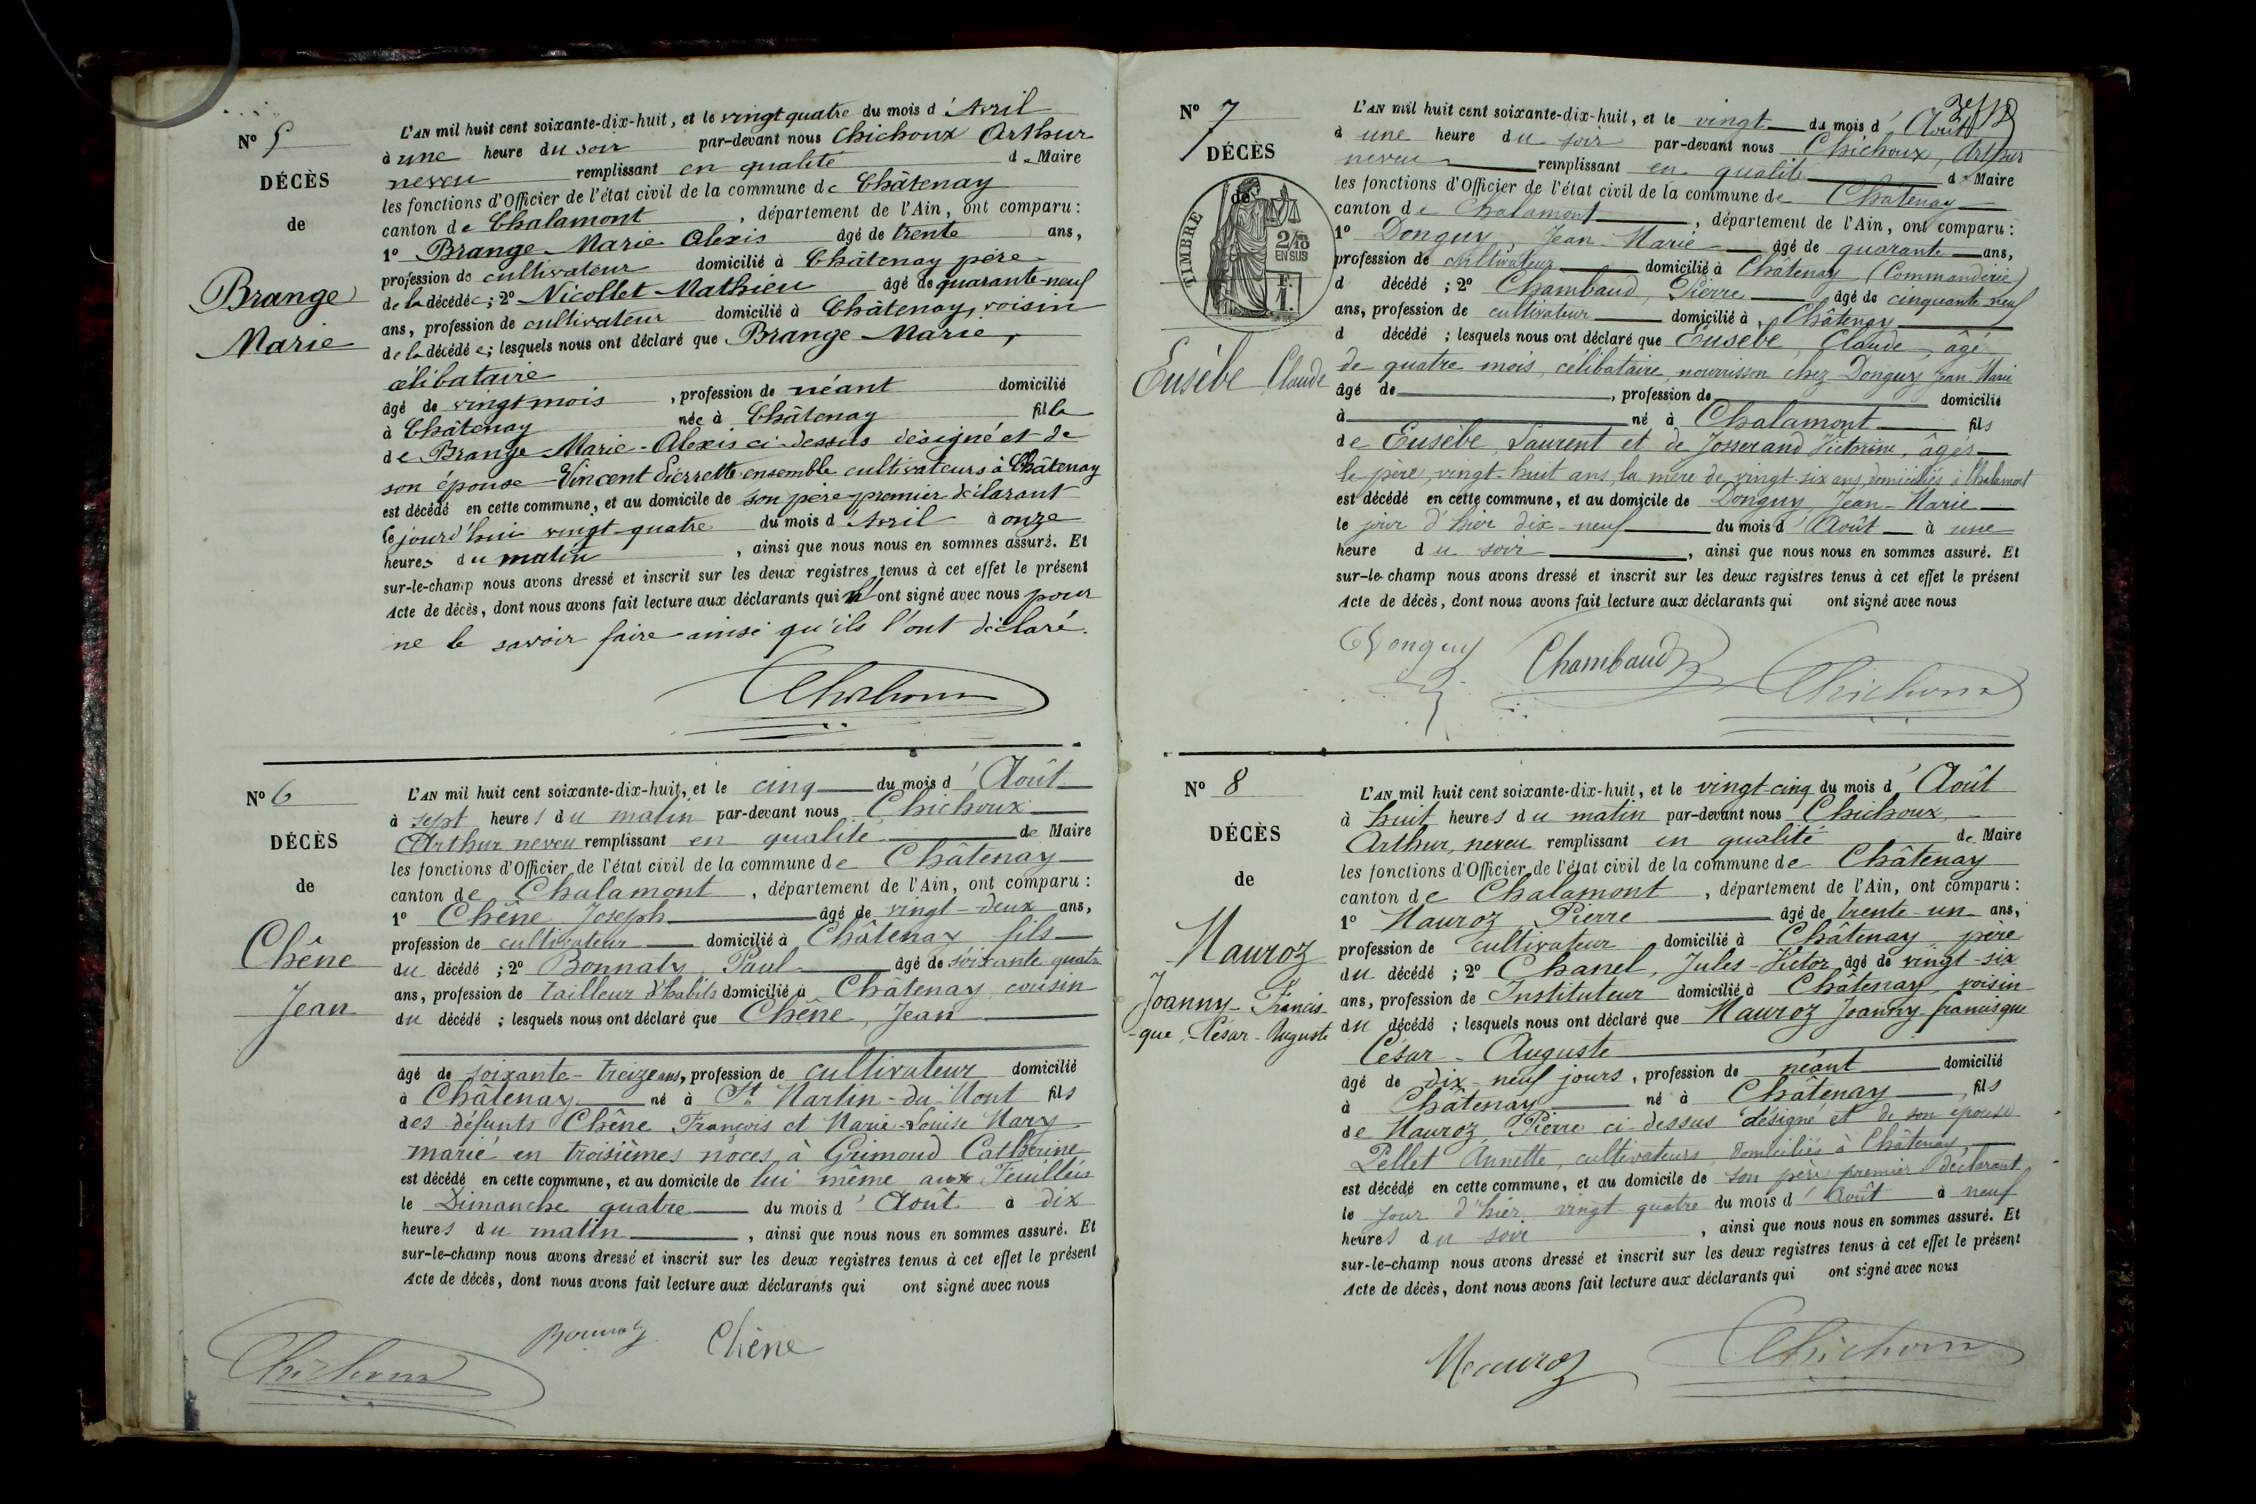 N° 5
DÉCÈS
de
Brange
Marie
L'AN mil huit cent soixante-dix-huit, et le vingt quatre du mois d'Avril
à une heure du soir par-devant nous Chichoux Arthur
neveu remplissant en qualité de Maire
les fonctions d'Officier de l'état civil de la commune de Châtenay
canton de Chalamont, département de l'Ain, ont comparu :
1° Brange Marie Alexis âgé de trente ans,
profession de cultivateur domicilié à Châtenay père
de la décédée ; 2° Nicollet Mathieu âgé de quarante-neuf
ans, profession de cultivateur domicilié à Châtenay, voisin
de la décédée ; lesquels nous ont déclaré que Brange Marie,
célibataire
âgé de vingt mois, profession de néant domicilié
à Châtenay née à Châtenay fille
de Brange Marie-Alexis ci-dessus désigné et de
son épouse Vincent Pierrette ensemble cultivateurs à Châtenay
est décédé en cette commune, et au domicile de son père premier déclarant
le jourd'hui vingt quatre du mois d'Avril à onze
heures du matin, ainsi que nous nous en sommes assuré. Et
sur-le-champ nous avons dressé et inscrit sur les deux registres tenus à cet effet le présent
Acte de décès, dont nous avons fait lecture aux déclarants qui n'ont signé avec nous pour
ne le savoir faire ainsi qu'ils l'ont déclaré.
Chichoux
N° 6
DÉCÈS
de
Chêne
Jean
L'AN mil huit cent soixante-dix-huit, et le cinq du mois d'Août
à sept heures du matin par-devant nous Chichoux
Arthur neveu remplissant en qualité de Maire
les fonctions d'Officier de l'état civil de la commune de Châtenay
canton de Chalamont, département de l'Ain, ont comparu :
1° Chêne Joseph âgé de vingt-deux ans,
profession de cultivateur domicilié à Châtenay fils
du décédé ; 2° Bonnaty Paul âgé de soixante quatre
ans, profession de tailleur d'habits domicilié à Châtenay cousin
du décédé ; lesquels nous ont déclaré que Chêne, Jean
âgé de soixante-treize ans, profession de cultivateur domicilié
à Châtenay né à St Martin-du-Mont fils
des défunts Chêne François et Marie-Louise Mary
marié en troisièmes noces à Grimoud Catherine
est décédé en cette commune, et au domicile de lui même aux
le Dimanche quatre du mois d'Août à dix
heures du matin, ainsi que nous nous en sommes assuré. Et
sur-le-champ nous avons dressé et inscrit sur les deux registres tenus à cet effet le présent
Acte de décès, dont nous avons fait lecture aux déclarants qui ont signé avec nous
Bonnaty Chêne
Chichoux
N° 7
DÉCÈS
de
TIMBRE
2/10
EN SUS
F.
1.
Eusèbe Claude
L'AN mil huit cent soixante-dix-huit, et le vingt du mois d'Août
à une heure du soir par-devant nous Chichoux, Arthur
neveu remplissant en qualité de Maire
les fonctions d'Officier de l'état civil de la commune de Châtenay
canton de Chalamont, département de l'Ain, ont comparu :
1° Donguy, Jean-Marie âgé de quarante ans,
profession de cultivateur domicilié à Châtenay (Commanderie)
d décédé ; 2° Chambaud, Pierre âgé de cinquante neuf
ans, profession de cultivateur domicilié à Châtenay
d décédé ; lesquels nous ont déclaré que Eusèbe, Claude, âgé
de quatre mois, célibataire, nourrisson chez Donguy Jean-Marie
âgé de , profession de domicilié
à né à Chalamont fils
de Eusèbe, Laurent et de Josserand Victorine, âgés
le père, vingt-huit ans, la mère de vingt-six ans, domiciliés à Chalamont
est décédé en cette commune, et au domicile de Donguy, Jean-Marie
le jour d'hier dix-neuf du mois d'Août à une
heure du soir, ainsi que nous nous en sommes assuré. Et
sur-le-champ nous avons dressé et inscrit sur les deux registres tenus à cet effet le présent
Acte de décès, dont nous avons fait lecture aux déclarants qui ont signé avec nous
Donguy Chambaud Chichoux
N° 8
DÉCÈS
de
Mauroz
Joanny-Francis-
-que, César-Auguste
L'AN mil huit cent soixante-dix-huit, et le vingt-cinq du mois d'Août
à huit heures du matin par-devant nous Chichoux,
Arthur, neveu remplissant en qualité de Maire
les fonctions d'Officier de l'état civil de la commune de Châtenay
canton de Chalamont, département de l'Ain, ont comparu :
1° Mauroz Pierre âgé de trente-un ans,
profession de cultivateur domicilié à Châtenay père
du décédé ; 2° Chanel, Jules-Victor âgé de vingt-six
ans, profession de Instituteur domicilié à Châtenay, voisin
du décédé ; lesquels nous ont déclaré que Mauroz Joanny-francisque
César-Auguste
âgé de dix-neuf jours, profession de néant domicilié
à Châtenay né à Châtenay, fils
de Mauroz, Pierre ci-dessus désigné et de son épouse
Pellet Annette, cultivateurs domiciliés à Châtenay
est décédé en cette commune, et au domicile de son père premier déclarant
le jour d'hier vingt quatre du mois d'Août à neuf
heures du soir, ainsi que nous nous en sommes assuré. Et
sur-le-champ nous avons dressé et inscrit sur les deux registres tenus à cet effet le présent
Acte de décès, dont nous avons fait lecture aux déclarants qui ont signé avec nous
Mauroz Chichoux